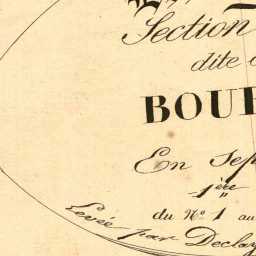 Section
dite
BOUR
En Sep
1ère
du No. 1 au
Levée par Declay